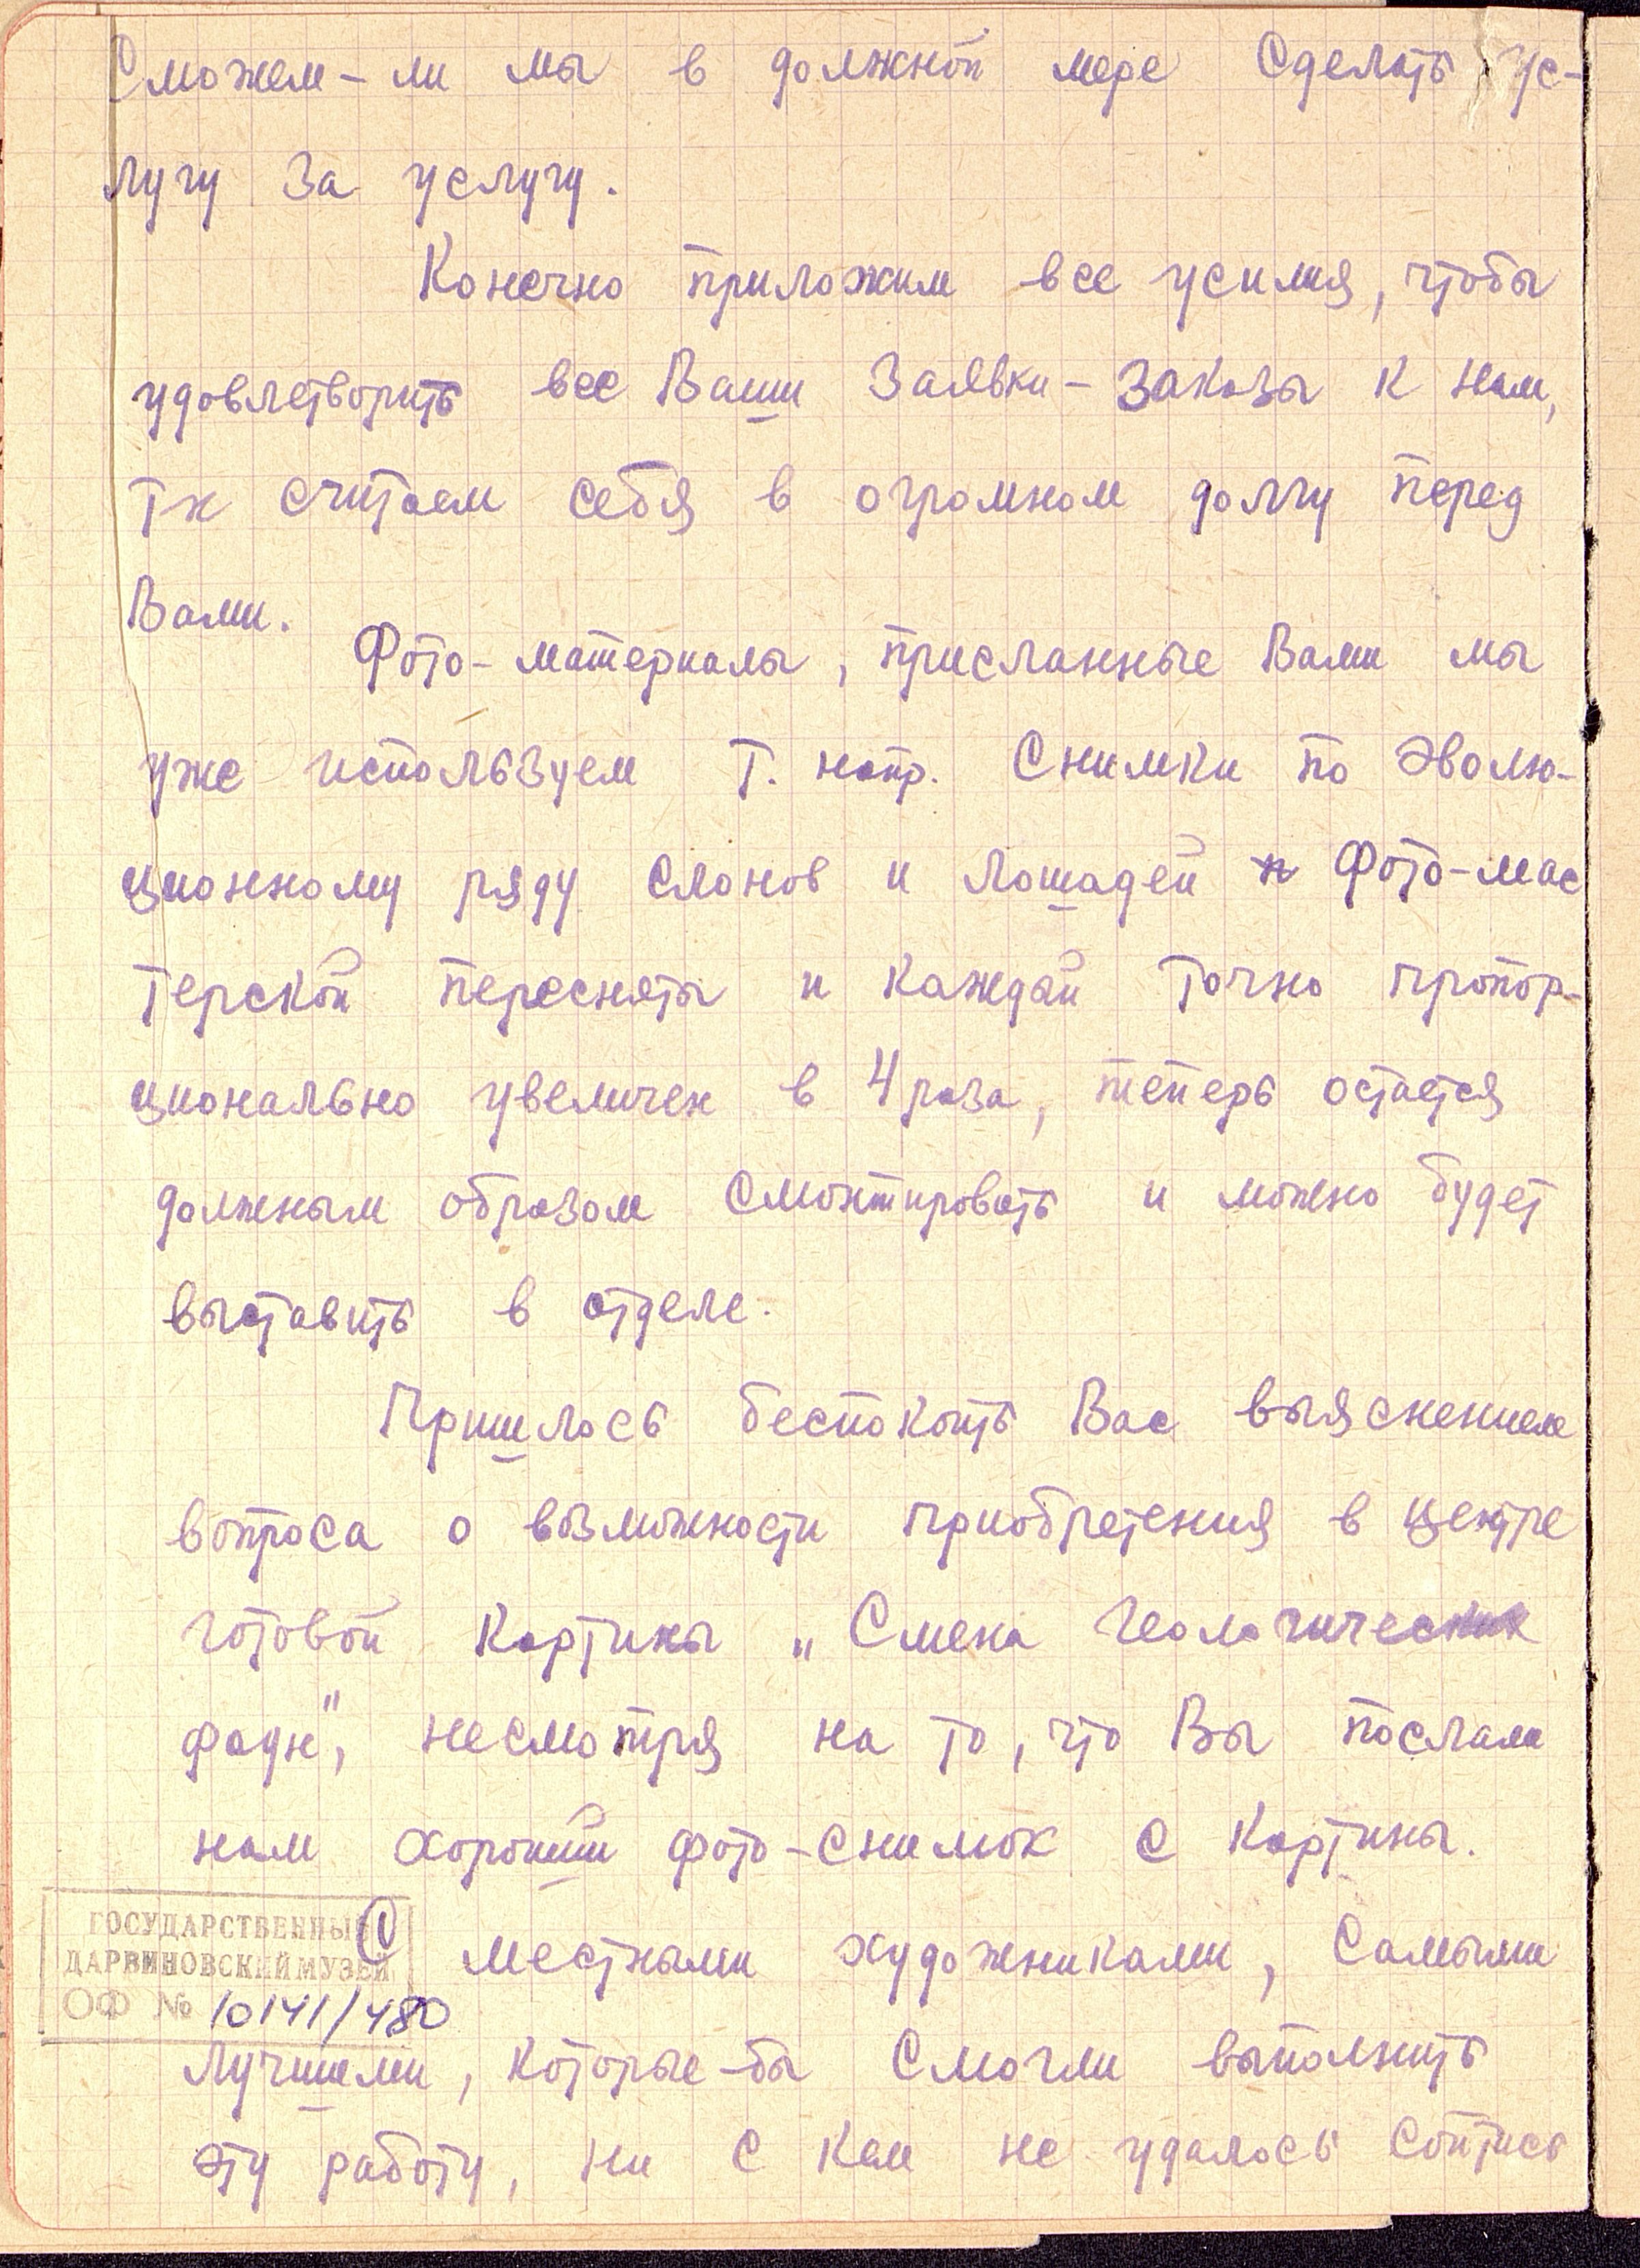 Сможем-ли мы в должной мере сделать ус-
лугу за услугу.
Конечно приложим все усилия, чтобы
удовлетворить все Ваши заявки-заказы к нам,
тк считаем себя в огромном долгу перед
Вами.
Фото-материалы, присланные Вами мы
уже используем т. напр. снимки по эволю-
ционному ряду слонов и лошадей Фото-мас
терской пересняты и каждый точно пропор-
ционально увеличен в 4 раза, теперь остается
должным образом смонтировать и можно будет
выставить в отделе.
Пришлось беспокоить Вас выяснением
вопроса о возможности приобретения в центре
готовой картины „Смена геологических
фаун", несмотря на то, что Вы послали
нам хороший фото-снимок с картины.
С местными художниками, самыми
лучшими, которые-бы смогли выполнить
эту работу, ни с кем не удалось сойтись
ГОСУДАРСТВЕННЫЙ
ДАРВИНОВСКИЙ МУЗЕЙ
ОФ № 10141/480